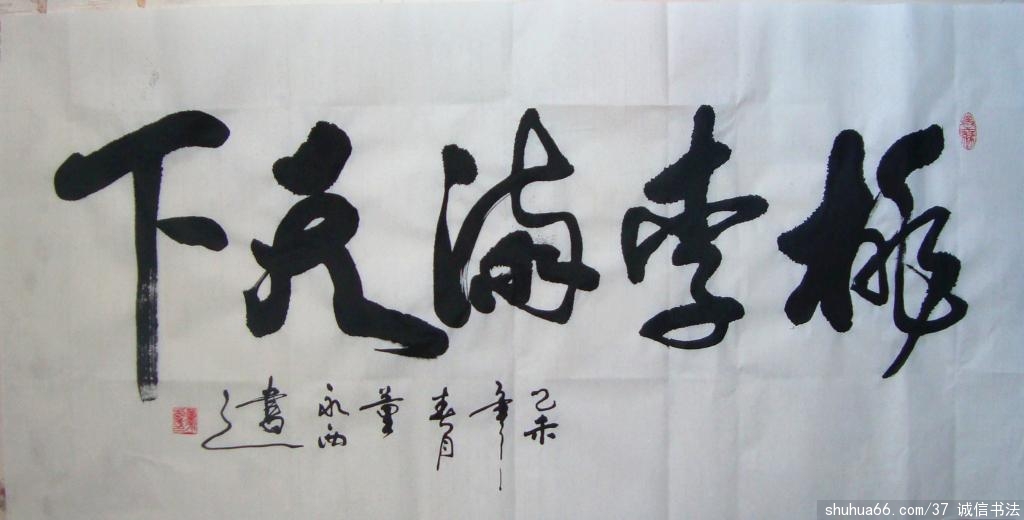 桃李满天下
乙未
年
春月
董
永西
書
之
shuhua66.com/37 诚信书法